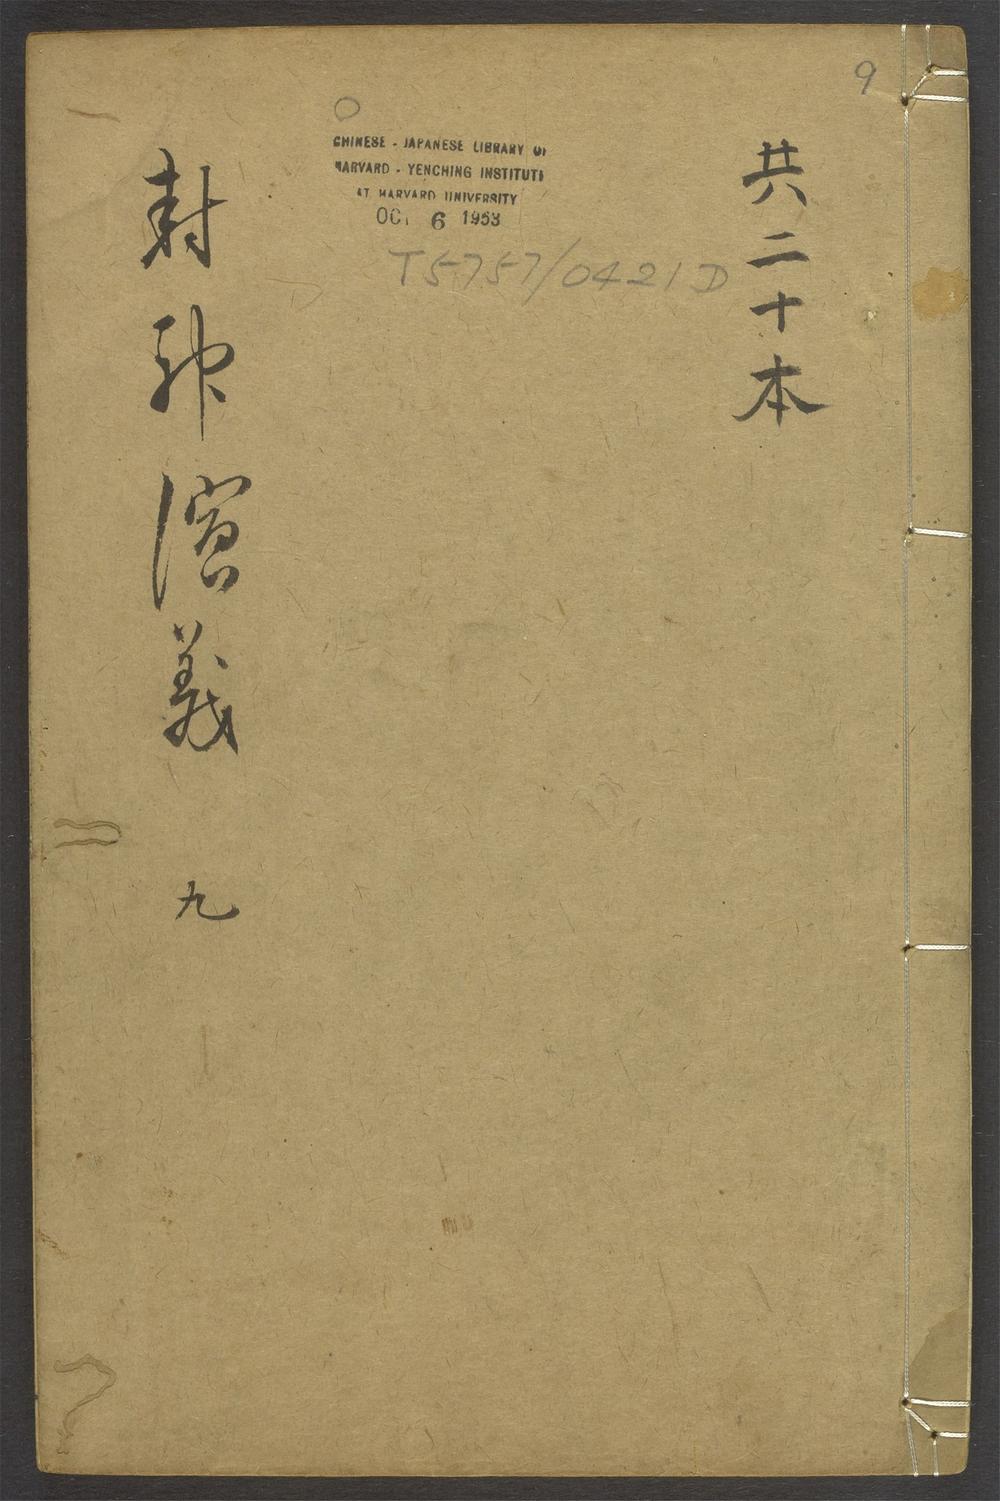 9
共二十本
CHINESE - JAPANESE LIBRARY OF
HARVARD - YENCHING INSTITUTE
AT HARVARD UNIVERSITY
OCT 6 1953
T5757/0421D
封神演義 九